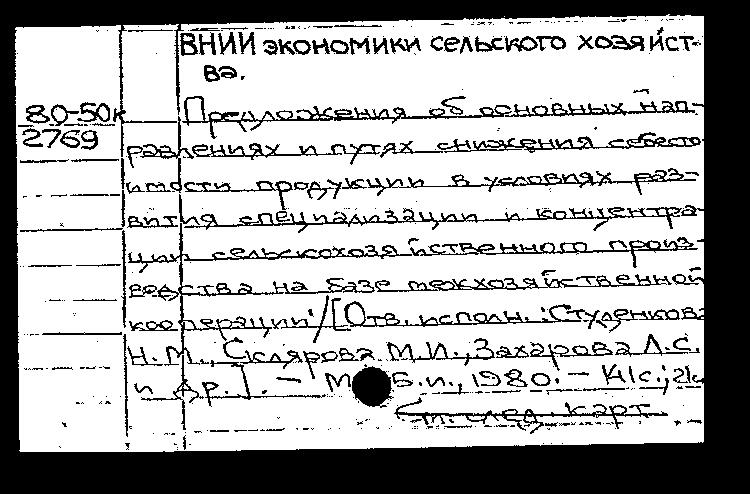 ВНИИ экономики сельского хозяйст-
ва.
80-50к
2769
Предложения об основных нап-
равлениях и путях снижения себесто
имости продукции в условиях раз-
вития специализации и концентра-
ции сельскохозяйственного произ-
водства на базе межхозяйственной
кооперации /[Отв. исполн.: Студенкова
Н.М., Склярова М.И., Захарова Л.С.
и др.]. - М. Б.и., 1980. - 41с.;
См. след. карт.